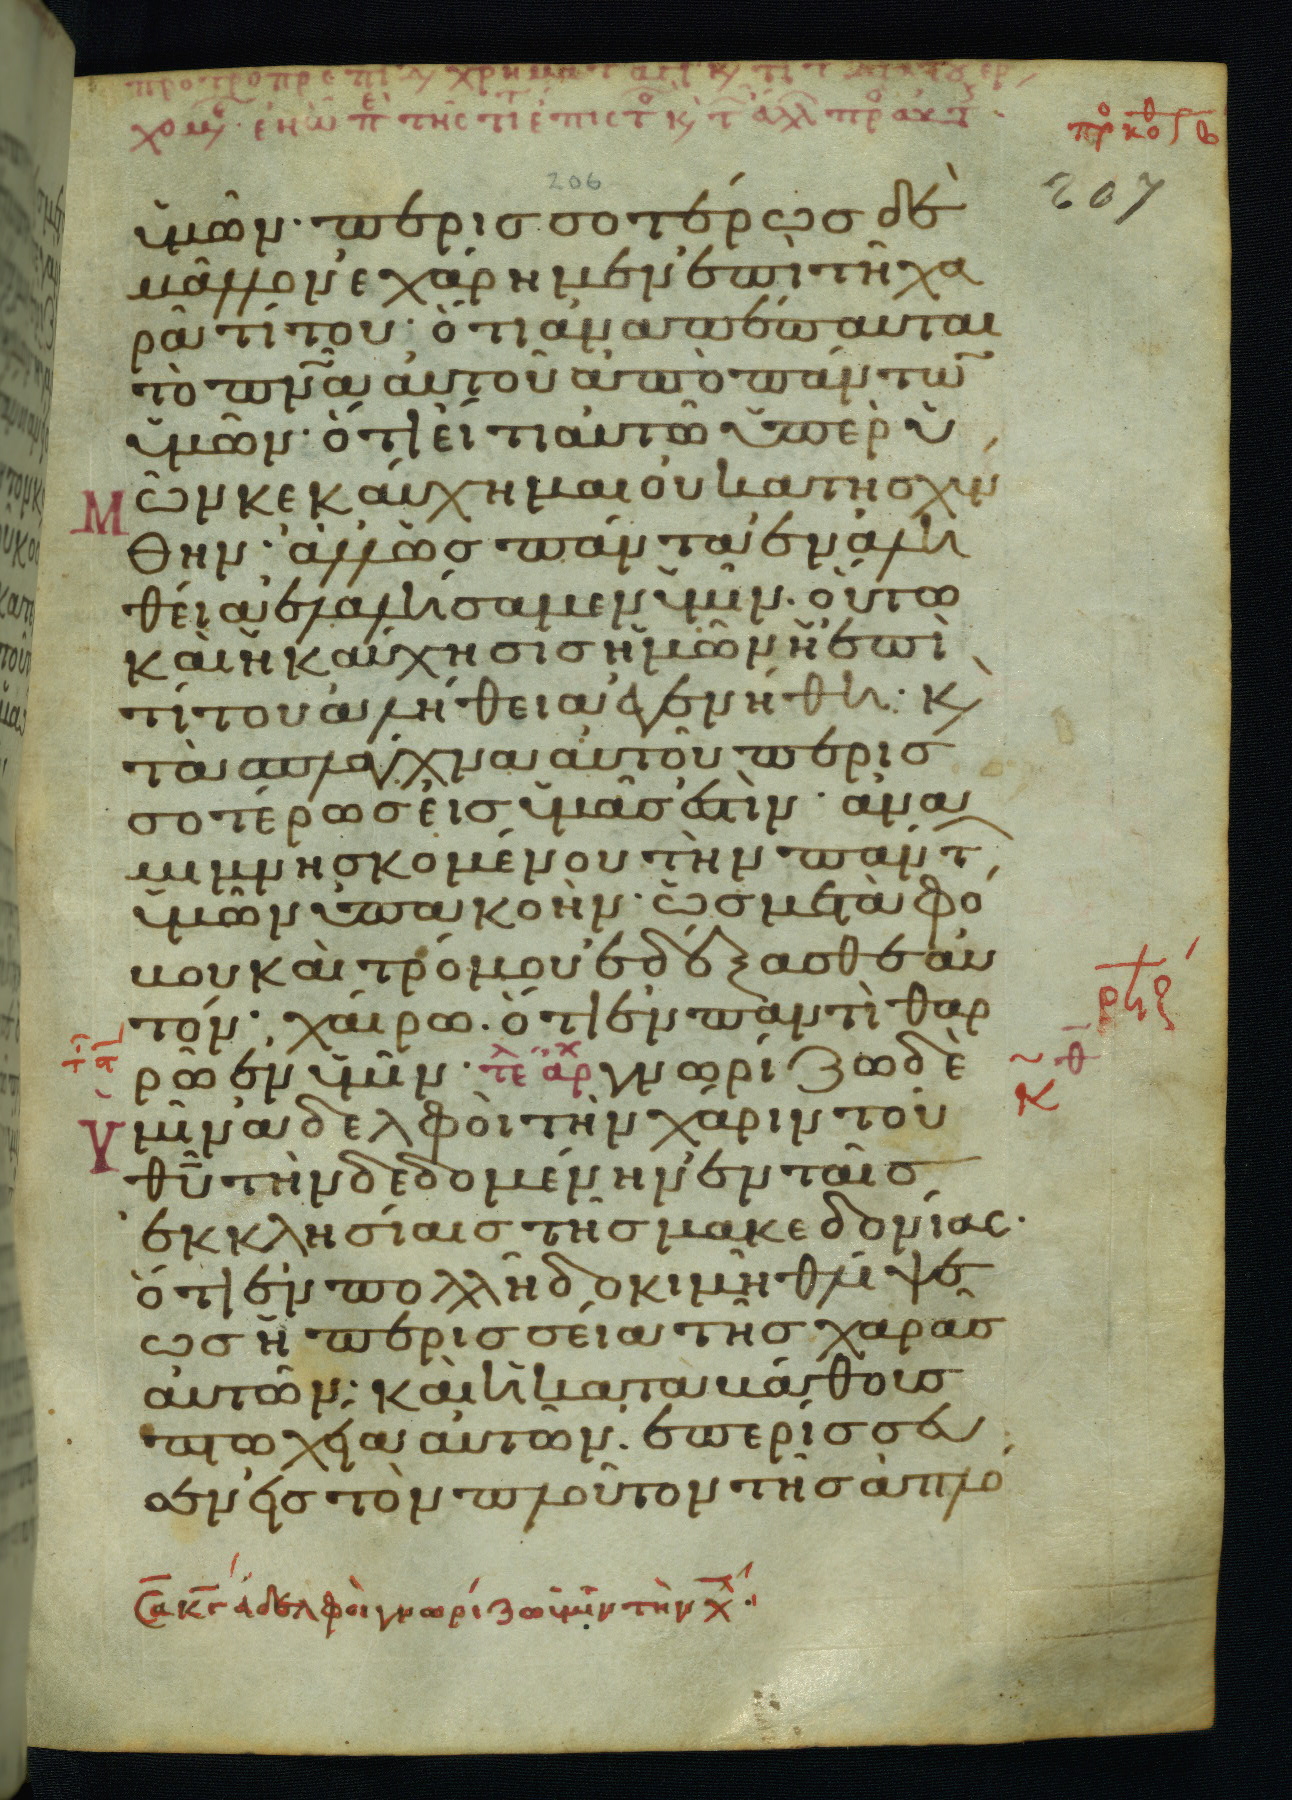 206
207
ὑμῶν· περισσοτέρως δὲ
μᾶλλον ἐχάρημεν ἐπὶ τῆ χα
ρᾶ τίτου· ὅτι ἀναπέπαυται
τὸ πν̅α αὐτοῦ ἀπὸ πάντω̅
ὑμῶν· ὅτι εἴ τι αὐτῶ ὑπὲρ ὑ
μῶν κεκαύχημαι οὐ κατησχύν
θην· ἀλλ' ὡς πάντα ἐν ἀλη
θεία ἐλαλήσαμεν ὑμῖν· οὕτω
καὶ ἡ καύχησις ἡμῶν ἡ ἐπὶ
τίτου ἀλήθεια ἐγενήθη· κ̀
τὰ σπλάγχνα αὐτοῦ περισ
σοτέρως εἰς ὑμᾶς ἐστὶν· ἀνα
μιμνησκομένου τὴν πάντ
ὑμῶν ὑπακοὴν· ὡς μετὰ φό
βου καὶ τρόμου ἐδέξασθε αὐ
τόν· χαίρω· ὅτι ἐν παντὶ θαρ
ρῶ ἐν ὑμῖν· τε ἀρχ γνωρίζω δὲ
ὑμῖν ἀδελφοὶ τὴν χάριν τοῦ
θ̅υ τὴν δεδομένην ἐν ταῖς
ἐκκλησίαις τῆς μακεδονίας·
ὅτι ἐν πολλῆ δοκιμῆ θλίψε
ως ἡ περισσεία τῆς χαρᾶς
αὐτῶν· καὶ ἡ κατὰ βάθους
πτωχεία αὐτῶν· ἐπερίσσευ
σεν εἰς τὸν πλοῦτον τῆς ἁπλό
ἀδελφοὶ γνωρίζω ὑμῖν τὴν χ